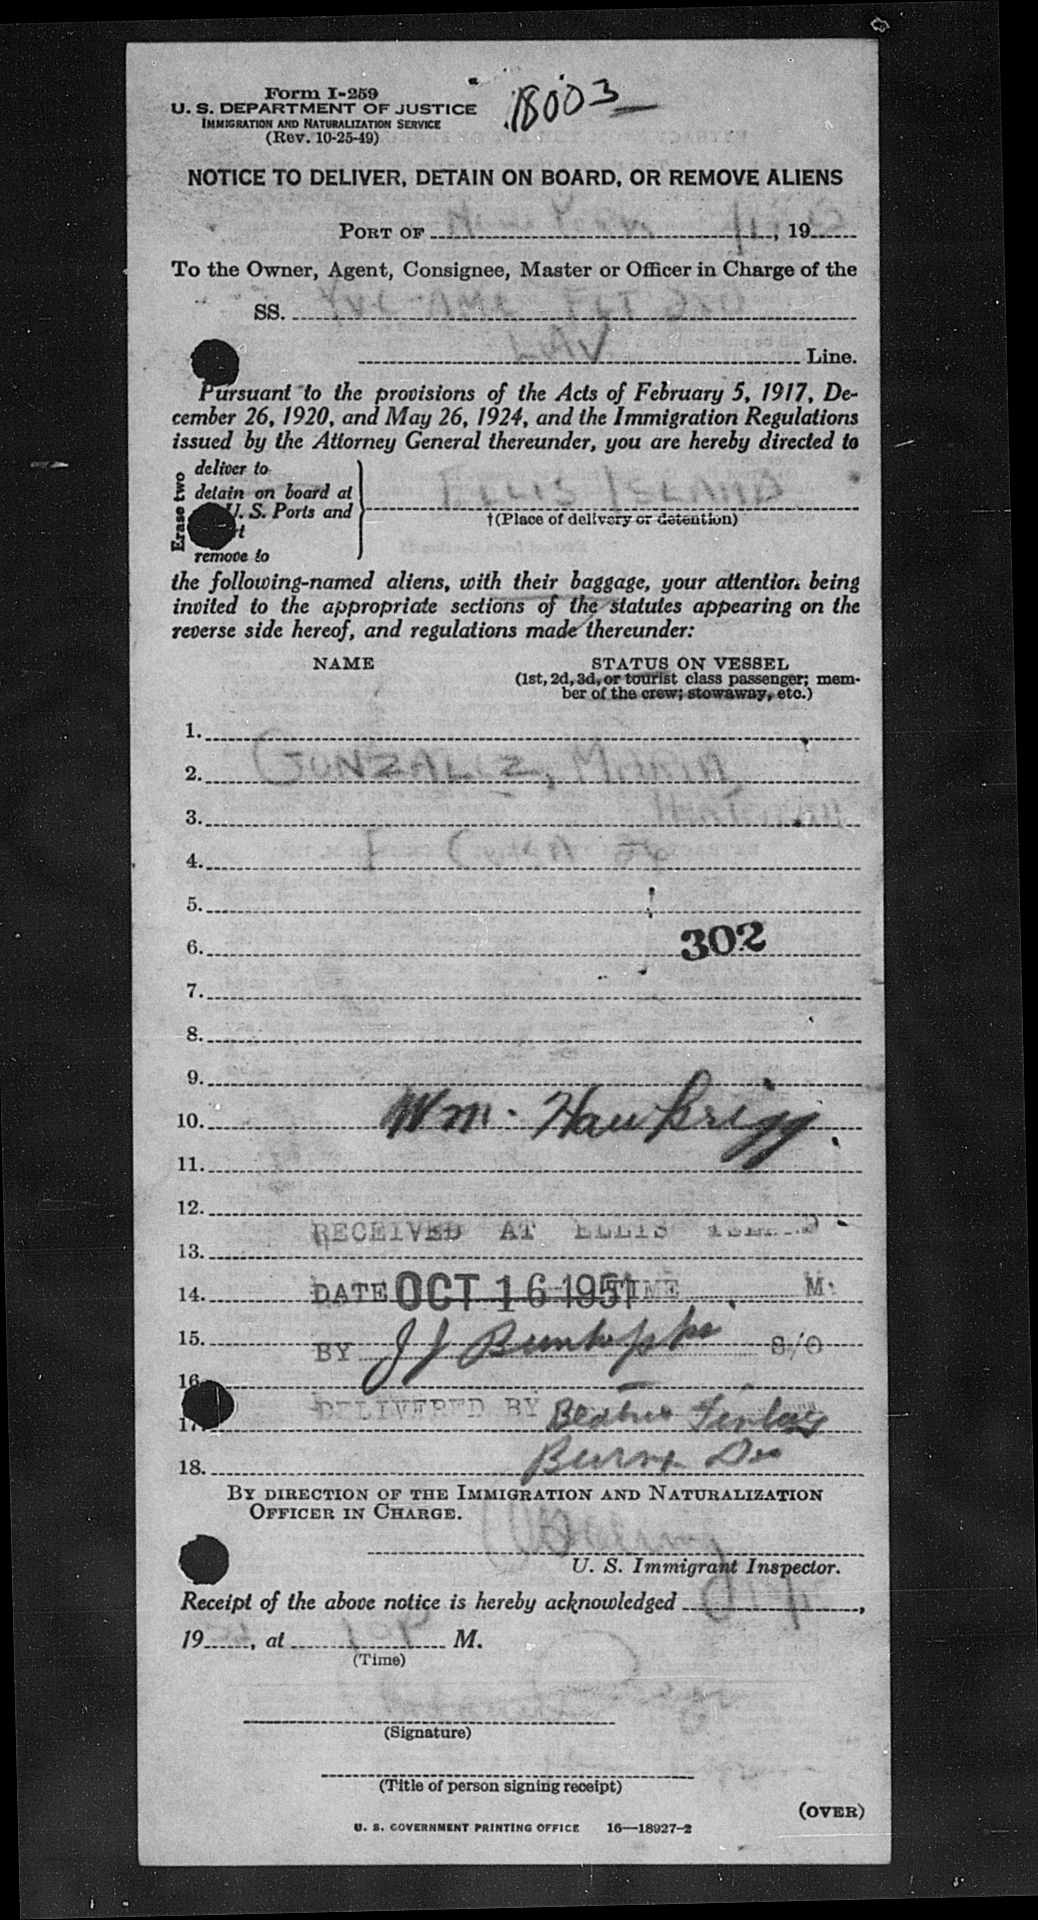 Form I-259
18003
U. S. DEPARTMENT OF JUSTICE
IMMIGRATION AND NATURALIZATION SERVICE
(Rev. 10-25-49)
NOTICE TO DELIVER, DETAIN ON BOARD, OR REMOVE ALIENS
PORT OF New York, 19
To the Owner, Agent, Consignee, Master or Officer in Charge of the
SS.
LAV Line.
Pursuant to the provisions of the Acts of February 5, 1917, De-
cember 26, 1920, and May 26, 1924, and the Immigration Regulations
issued by the Attorney General thereunder, you are hereby directed to
Erase two
deliver to
detain on board at
U. S. Ports and
remove to
ELLIS ISLAND
†(Place of delivery or detention)
the following-named aliens, with their baggage, your attention being
invited to the appropriate sections of the statutes appearing on the
reverse side hereof, and regulations made thereunder:
NAME STATUS ON VESSEL
(1st, 2d, 3d, or tourist class passenger; mem-
ber of the crew; stowaway, etc.)
1.
2. GONZALEZ, MARIA
3.
4.
5.
6. 302
7.
8.
9.
10. Wm. Hawkrigg.
11.
12.
RECEIVED AT ELLIS
13.
14. DATE OCT 16 1951 TIME M.
15. BY J J
16.
DELIVERED BY Beatrice
17.
18.
BY DIRECTION OF THE IMMIGRATION AND NATURALIZATION
OFFICER IN CHARGE.
U. S. Immigrant Inspector.
Receipt of the above notice is hereby acknowledged ,
19 , at M.
(Time)
(Signature)
(Title of person signing receipt)
(OVER)
U. S. GOVERNMENT PRINTING OFFICE 16—18927-2